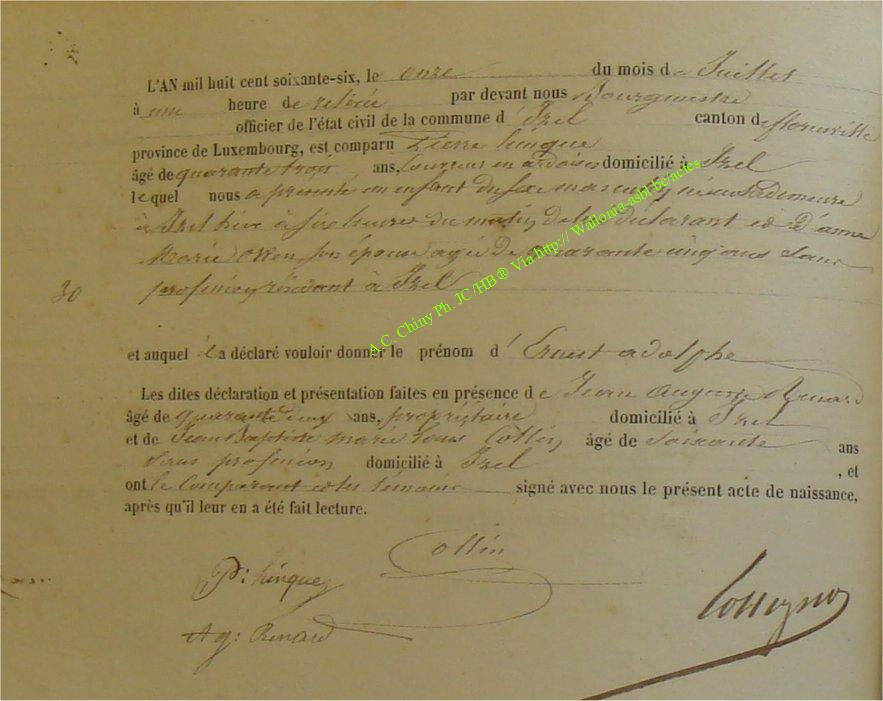 L'AN mil huit cent soixante-six, le onze du mois de Juillet
à une heure de relevée par devant nous Bourgmestre
officier de l'état civil de la commune d'Izel canton de florenville
province de Luxembourg, est comparu Pierre hinque
âgé de quarante trois ans, couvreur en ardoises domicilié à Izel
lequel nous a présenté un enfant du sexe masculin, né en sa demeure
à Izel hier à six heures du matin, de lui déclarant et d'anne
Marie son épouse agée de quarante cinq ans sans
30 profession, résidant à Izel
et auquel il a déclaré vouloir donner le prénom d'Ernest adolphe
Les dites déclaration et présentation faites en présence de Jean auguste Renard
âgé de quarante deux ans, propriétaire domicilié à Izel
et de Jean Baptiste marie louis Collin, âgé de soixante ans
sans profession, domicilié à Izel , et
ont le comparant et les témoins signé avec nous le présent acte de naissance,
après qu'il leur en a été fait lecture.
Collin
P: hinque
Ag: Renard
A.C. Chiny Ph. JC/HB® Via http:// Wallonia-asbl.be/actes